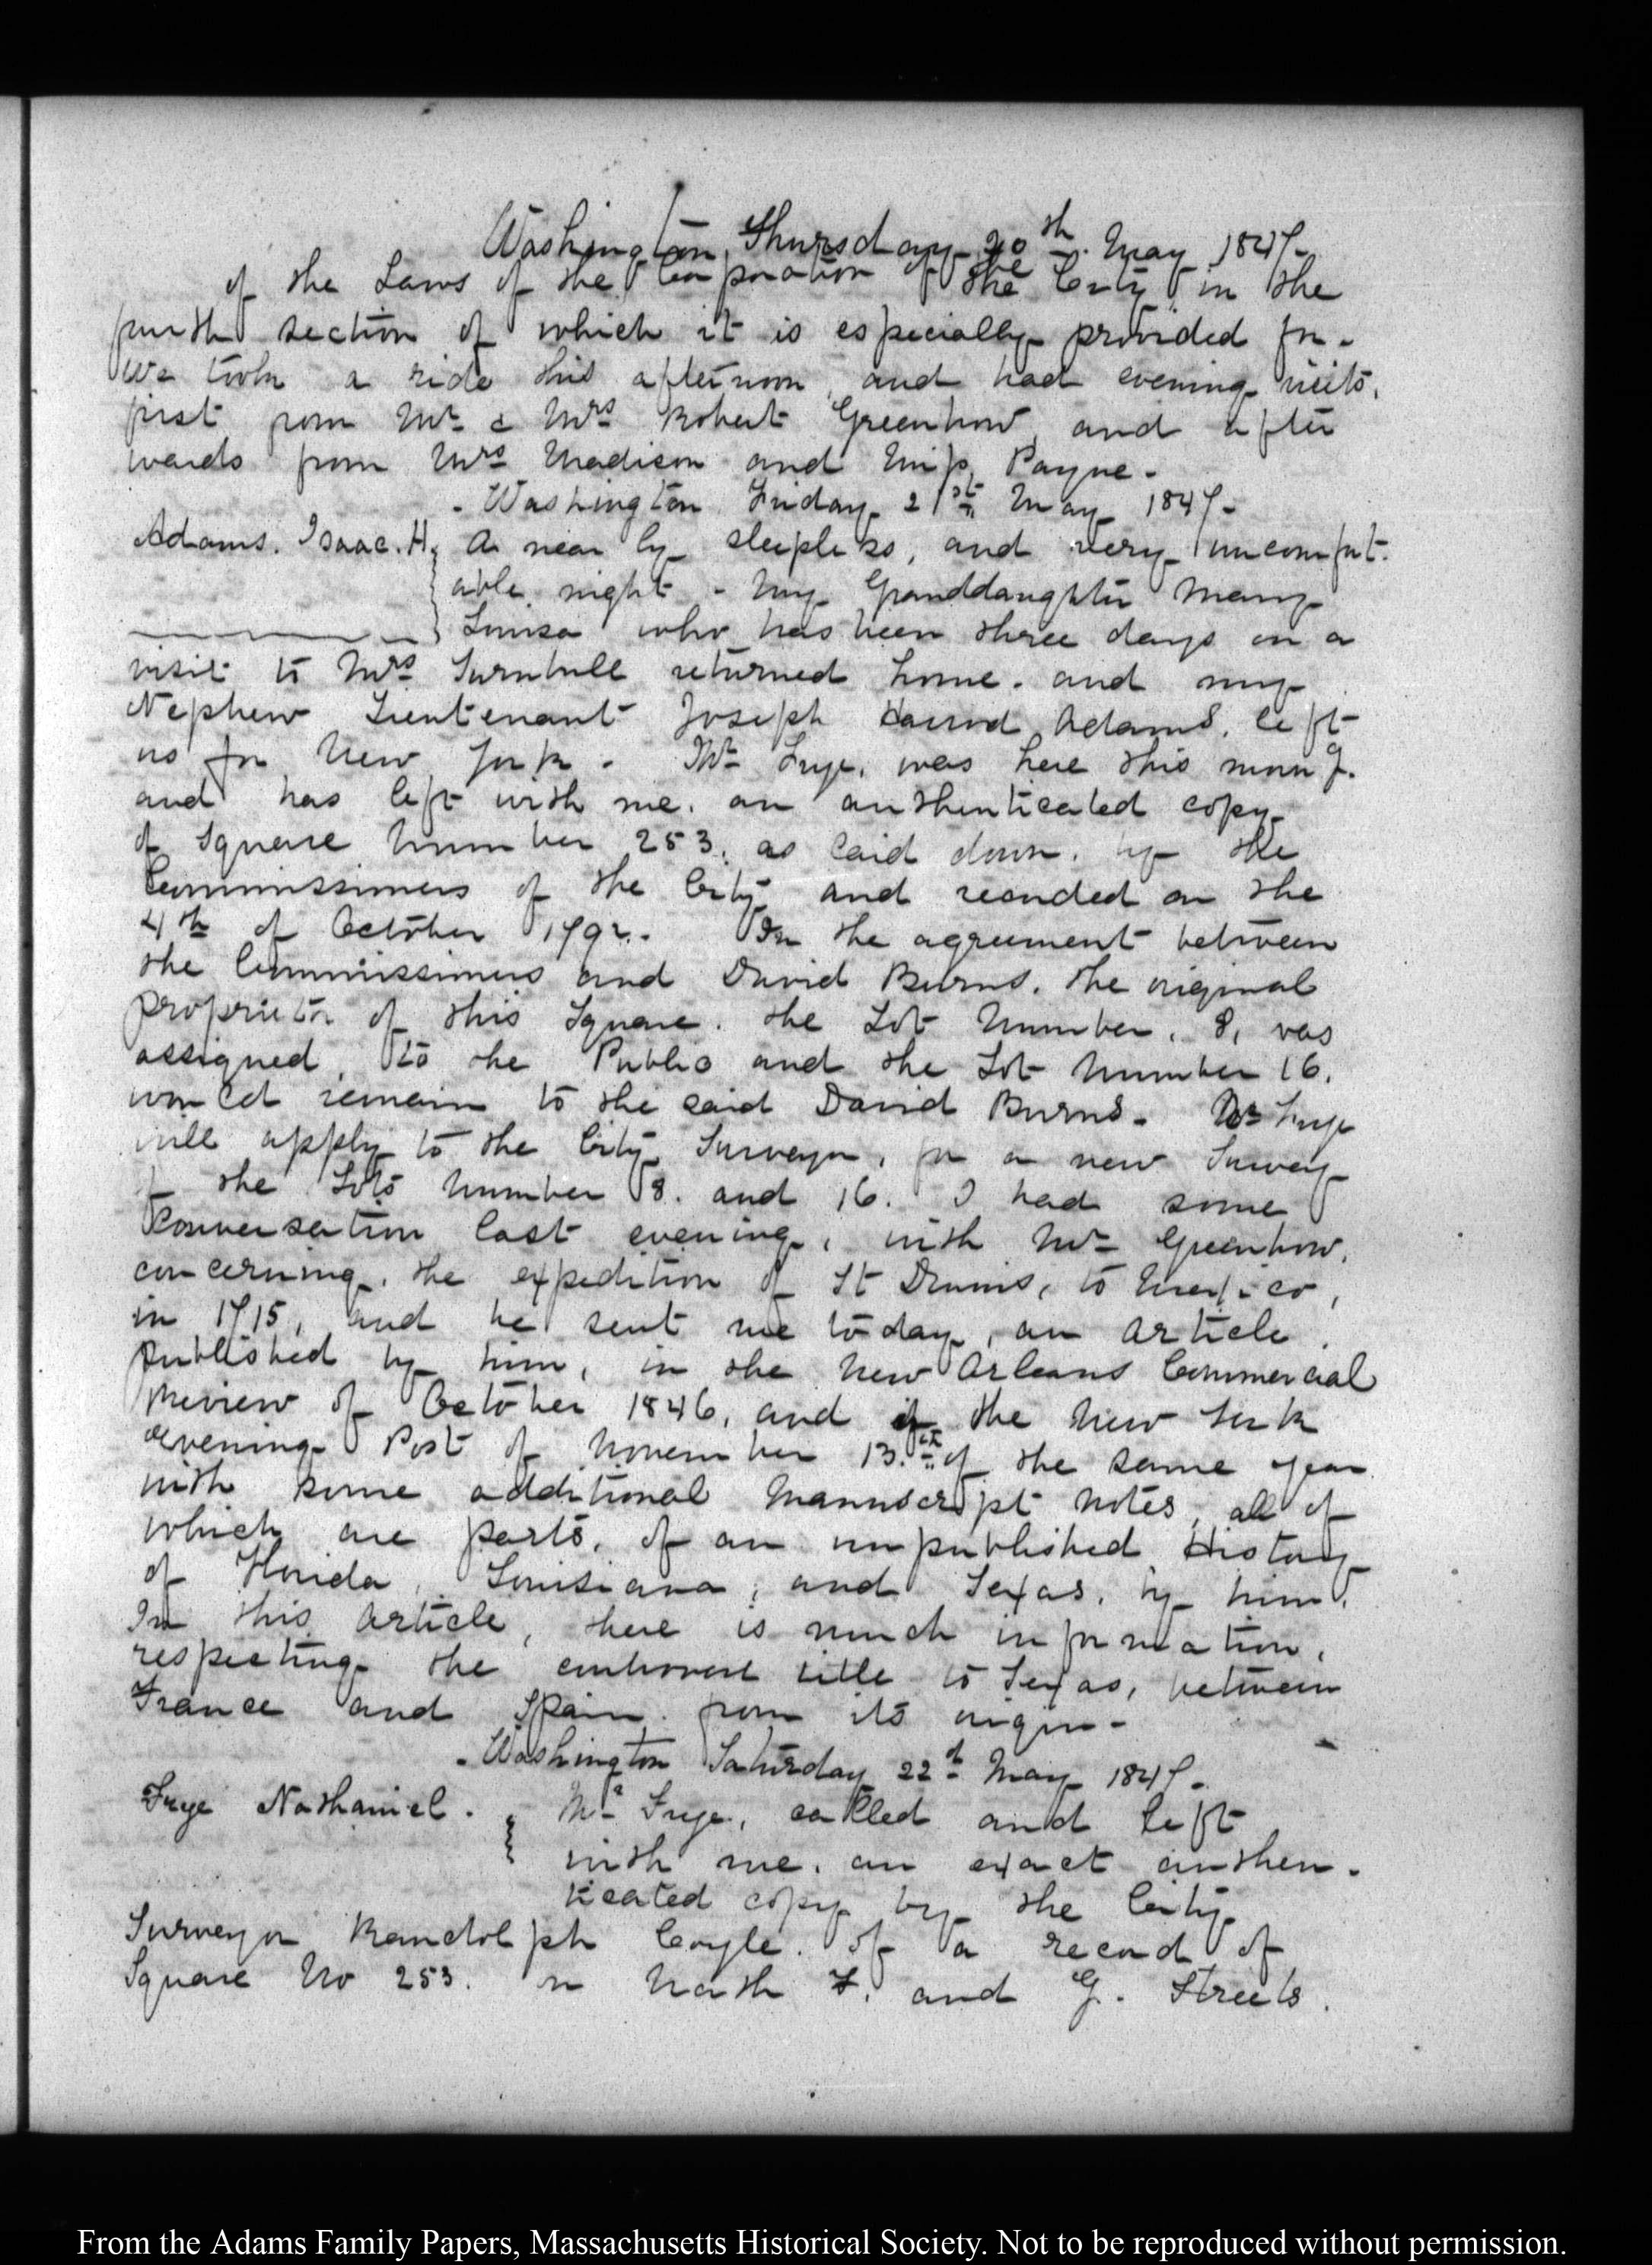 Washington, Thursday 20th. May 1847-
of the Laws of the Corporation of the City, in the
fourth section of which it is especially provided for-
We took a ride this afternoon, and had evening visits,
first from Mr & Mrs Robert Greenhow, and after
wards from Mrs Madison and Miss Payne-
- Washington Friday 21st. May 1847-
Adams. Isaac. H. A near by sleepless, and very uncomfort.
able night - My Granddaughter Mary
Louisa who has been three days on a
visit to Mrs Turnbull returned home. and my
Nephew Lieutenant Joseph Harrod Adams. left
us for New York. Mr Frye, was here this morng.
and has left with me. an authenticated copy
of Square Number 253, as laid down, by the
Commissioners of the City and recorded on the
4th of October 1792.- In the agreement between
the Commissioners and David Burns. the original
proprietor of this Square. the Lot Number. 8, was
assigned, to the Public and the Lot Number 16.
would remain to the said David Burns- Mr Frye
will apply to the City Surveyor, for a new Survey
of the Lots Number 8. and 16. I had some
Conversation last evening, with Mr Greenhow.
concerning, the expedition of St Denis, to Mexico,
in 1715, and he sent me today, an article
published by him, in the New Orleans Commercial
Review of October 1846, and of the New York
evening Post of November 13.th of the same year
with some additional Manuscript Notes, all of
which are parts, of an unpublished History
of Florida, Louisiana, and Texas, by him,
In this article, there is much information,
respecting the title to Texas, between
France and Spain from its origin-
- Washington Saturday 22d May 1847-
Frye Nathaniel. Mr Frye, called and left
with me. an exact authen-
ticated copy by the City
Surveyor Randolph Coyle. of a record of
Square No 253. on North F. and G. Streets.
From the Adams Family Papers, Massachusetts Historical Society. Not to be reproduced without permission.